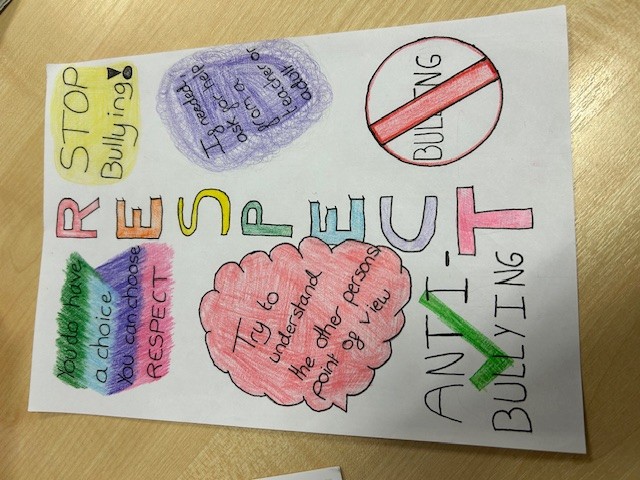 STOP
Bullying!
If needed,
ask for help
from a
teacher or
adult
BULLYING
RESPECT
You do have
a choice
You can choose
RESPECT
Try to
understand
the other persons
point of view
ANTI-
BULLYING